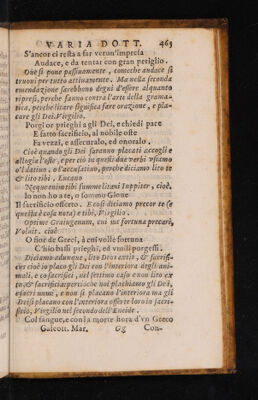 VARIA DOTT. 465
S'ancor ci resta a far verun'impresa
Audace, e da tentar con gran periglio.
Oue si pone passiuamente, comeche audace si
truoui per tutto attiuamente. Ma nella seconda
emendazione sarebbono degni d'essere alquanto
ripresi, perche fanno contra l'arte della grama-
tica, perche litare significa fare orazione, e pla-
care gli Dei. Virgilio.
Porgi or prieghi a gli Dei, e chiedi pace
E fatto sacrificio, al nobile oste
Fa vezzi, e assecuralo, ed onoralo.
Cioè quando gli Dei saranno placati accogli e
alloggia l'oste, e per ciò in questi due verbi usiamo
o'l datiuo, o l'accusatiuo, perche diciamo lito te
& lito tibi, Lucano
Neque enim tibi summe litaui Iuppiter, cioè.
Io non ho a te, o sommo Gioue
Il sacrificio offerto. E così diciamo precor te (e
questa è cosa nota) e tibi, Virgilio.
Optime Graiugenum, cui me fortuna precari,
Voluit. cioè
O fior de Greci, à cui volle fortuna
C'hio bassi prieghi, ed vmili porgessi.
Diciamo adunque, lito Deos extis, & sacrifi-
cus cioè io placo gli Dei con l'interiora degli ani-
mali, e co sacrifici, nel settimo caso e non lito ex-
ta, & sacrificia: percioche noi plachiamo gli Dei,
e sacri numi, e non si placano l'interiora ma gli
Dei si placano con l'exteriora offerte loro in sacri-
ficio, Virgilio nel secondo dell'Eneide.
Col sangue, e con la morte hora d'vn Greco
Galeott. Mar. Gg Con-